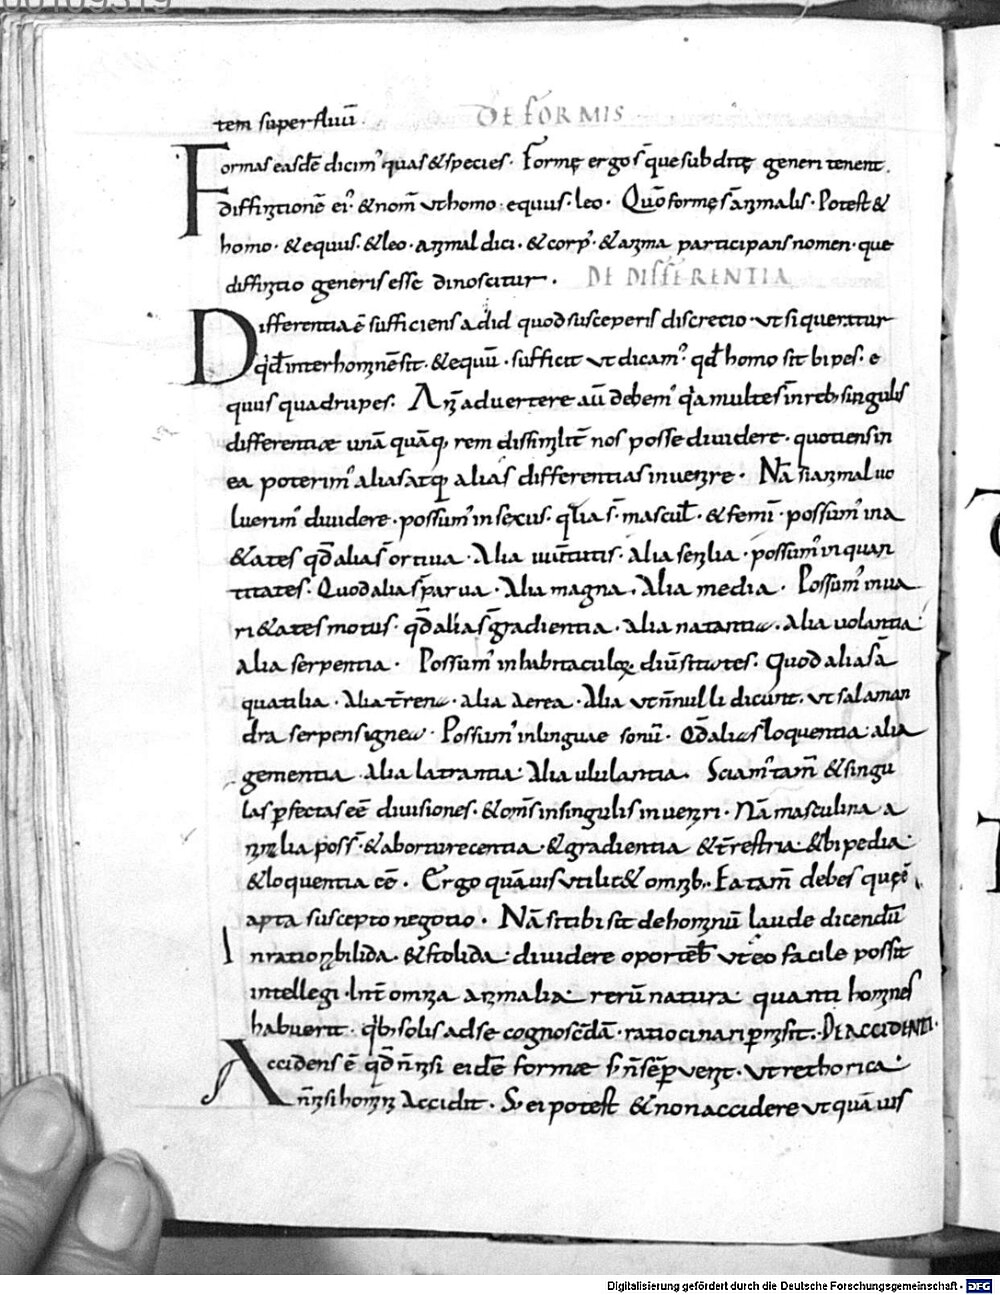 00109319
tem superfluū DE FORMIS
Formas easdē dicimꝰ quas & species. Formę ergo s̄ que subditę generi tenent.
diffinitionē eiꝰ. & nom̄ ut homo. equus. leo. Quō formę s̄ animalis. Potest &
homo. & equus. & leo. animal dici. & corpꝰ. & anima participans nomen. que
diffinitio generis esse dinoscitur. DE DIFFERENTIA
Differentia ē sufficiens ad id quod susceperis discretio. ut si queratur
qd̄ inter hominē sit. & equū. sufficit ut dicamꝰ. qd̄ homo sit bipes. e
quus quadrupes. Animaduertere aū debemꝰ qa multes in reb; singulis
differentiae unā quāq; rem dissimilit̄ nos posse diuidere. quotiens in
ea poterimꝰ alias atq; alias differentias inuenire. Nā si animal uo
luerimꝰ diuidere. possumꝰ in sexus. q alia s̄. mascul. & femī. possumꝰ in a
&ates qd̄ alia s̄ ortiua. Alia iuuentutis. alia senilia. possumꝰ in quan
titates. Quod alia s̄ parua. Alia magna. Alia media. Possumꝰ in ua
ri&ates motus. qd̄ alia s̄ gradientia. Alia natantia. Alia uolantia.
alia serpentia. Possumꝰ in habitaculoꝝ diūsitates. Quod alia s̄ a
quatilia. Alia t̄rena. alia aerea. Alia ut nnulli dicunt. ut salaman
dra serpens ignea. Possumꝰ in linguae sonū. Qd̄ alia s̄ loquentia. alia
gementia. Alia latrantia. Alia ululantia. Sciamꝰ tam̄ & singu
las ꝑfectas eē diuisiones. & om̄s in singulis inueniri. Nā masculina a
nimalia poss̄. & aborturecentia. & gradientia & t̄restria. & bipedia.
& loquentia eē. Ergo quāuis utilit& omnib;. Ea tam̄ debes quę ē
apta suscepto negotio. Nā si tibi sit de hominū laude dicendū
In rationabilida. & stolida. diuidere oporteb ut eo facile possit
intellegi. Int̄ omnia animalia rerū natura quantū homines
habuerit. qb; solis ad se cognoscēdā. ratiocinari ꝑmisit. DE ACCIDENTI.
Accidens ē qd̄ n̄ nisi eidē formae s; n̄ sēꝑ uenit. ut rethorica.
n̄ nisi homini accidit. S; ei potest & non accidere ut quāuis
Digitalisierung gefördert durch die Deutsche Forschungsgemeinschaft - DFG